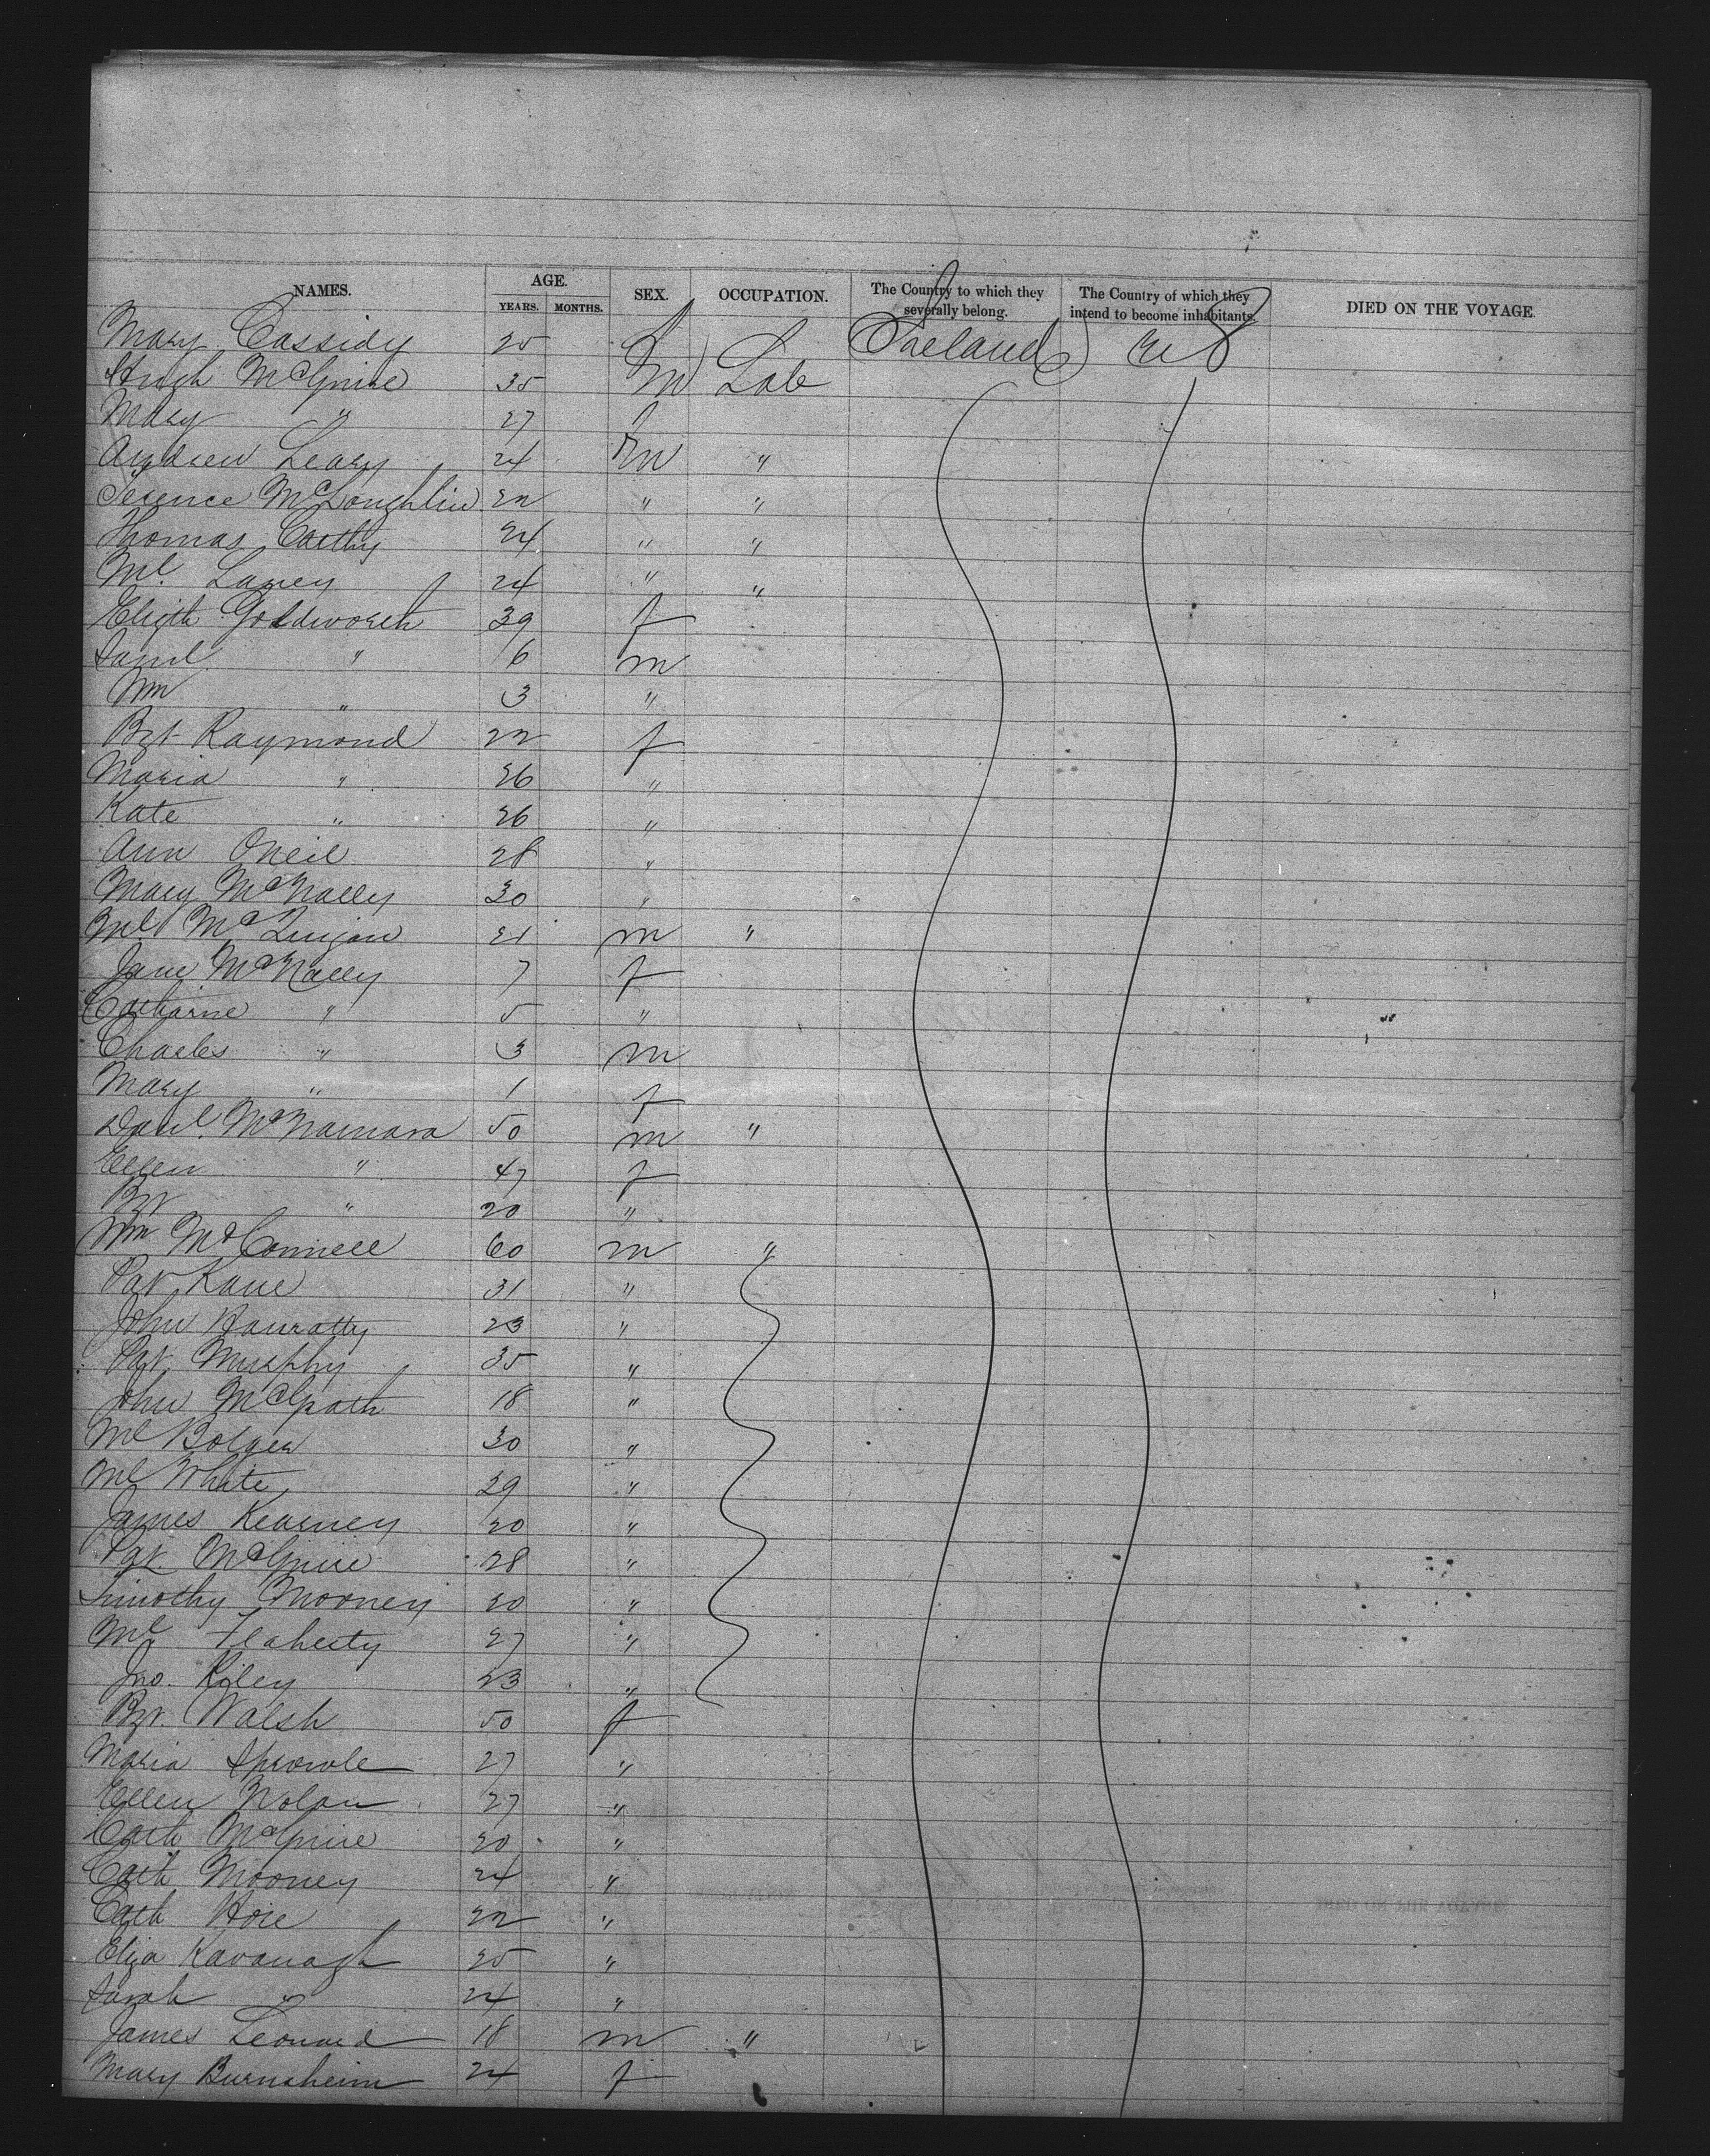 NAMES. AGE. YEARS. MONTHS. SEX. OCCUPATION. The Country to which they severally belong. The Country of which they intend to become inhabitants. DIED ON THE VOYAGE.
Mary Cassidy 25 f Ireland US
Hugh McGuire 35 m Lab
Mary " 27 f
Andrew Leary 24 m "
Terence McLoughlin 22 " "
Thomas Carthy 24 " "
Ml. Laney 24 " "
Elizth Goldworth 39 f
Saml " 6 m
Wm " 3 "
Bgt Raymond 22 f
Maria " 26 "
Kate " 26 "
Ann Oneil 28 "
Mary McNally 30 "
Ml 21 m "
Jane McNally 7 f
Catharine " 5 "
Charles " 3 m
Mary " 1 f
Danl. McNamara 50 m "
Ellen " 47 f
Bgt " 20 "
Wm McConnell 60 m "
Pat Kane 31 "
John Hanratty 23 "
Pat Murphy 35 "
John McGrath 18 "
Ml Bolger 30 "
Ml White 29 "
James Kearney 20 "
Pat McGuire 28 "
Timothy Mooney 20 "
Ml Flaherty 27 "
Jno. Riley 23 "
Bgt. Walsh 50 f
Maria Sprowle 27 "
Ellen Nolan 27 "
Cath McGuire 20 "
Cath Mooney 24 "
Cath Hoie 22 "
Eliza Kavanagh 25 "
Sarah " 24 "
James Leonard 18 m "
Mary Burnsheim 24 f